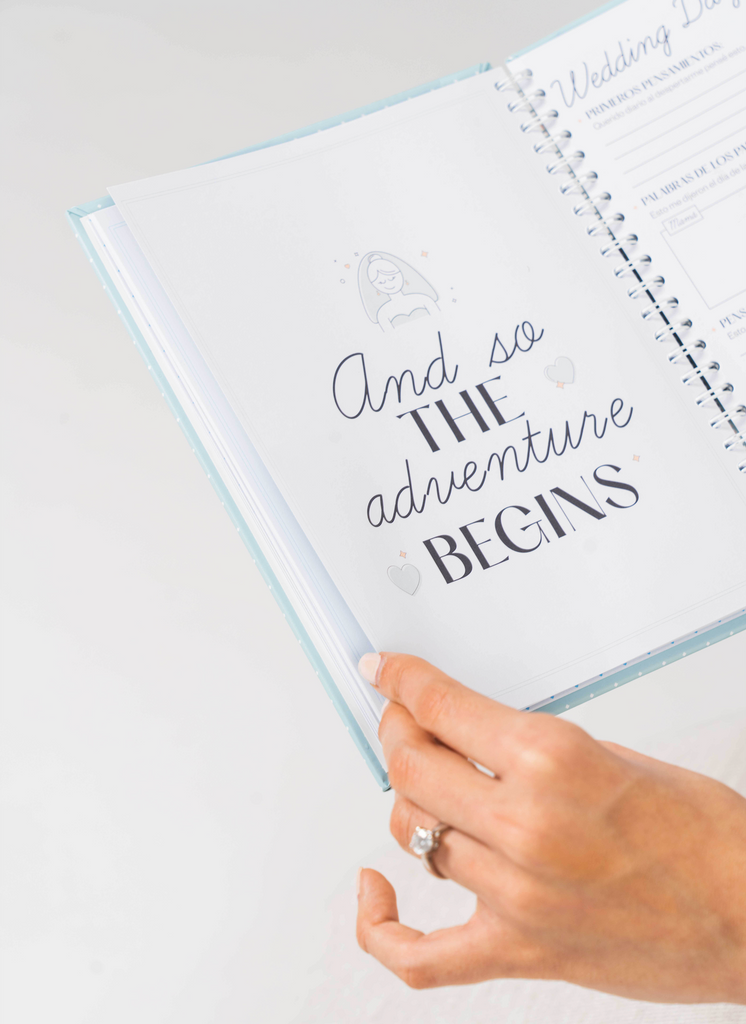 And so
THE
adventure
BEGINS
Wedding Day
PRIMEROS PENSAMIENTOS:
Querido diario al despertarme pensé
PALABRAS DE LOS
Esto me dijeron el día de
Mamá